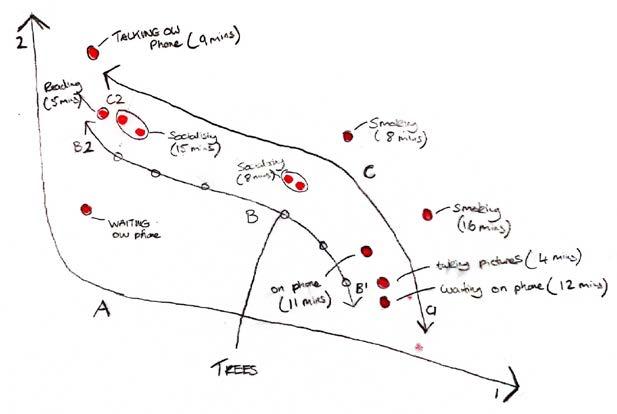 2
TALKING ON
Phone (9 mins)
Reading
(5 mins)
C2
Socialising
(15 mins)
B2
Smoking
(8 mins)
Socialising
(8 mins)
C
Smoking
(16 mins)
WAITING
ON phone
B
on phone
(11 mins)
B1
taking pictures (4 mins)
Waiting on phone (12 mins)
C1
A
TREES
1